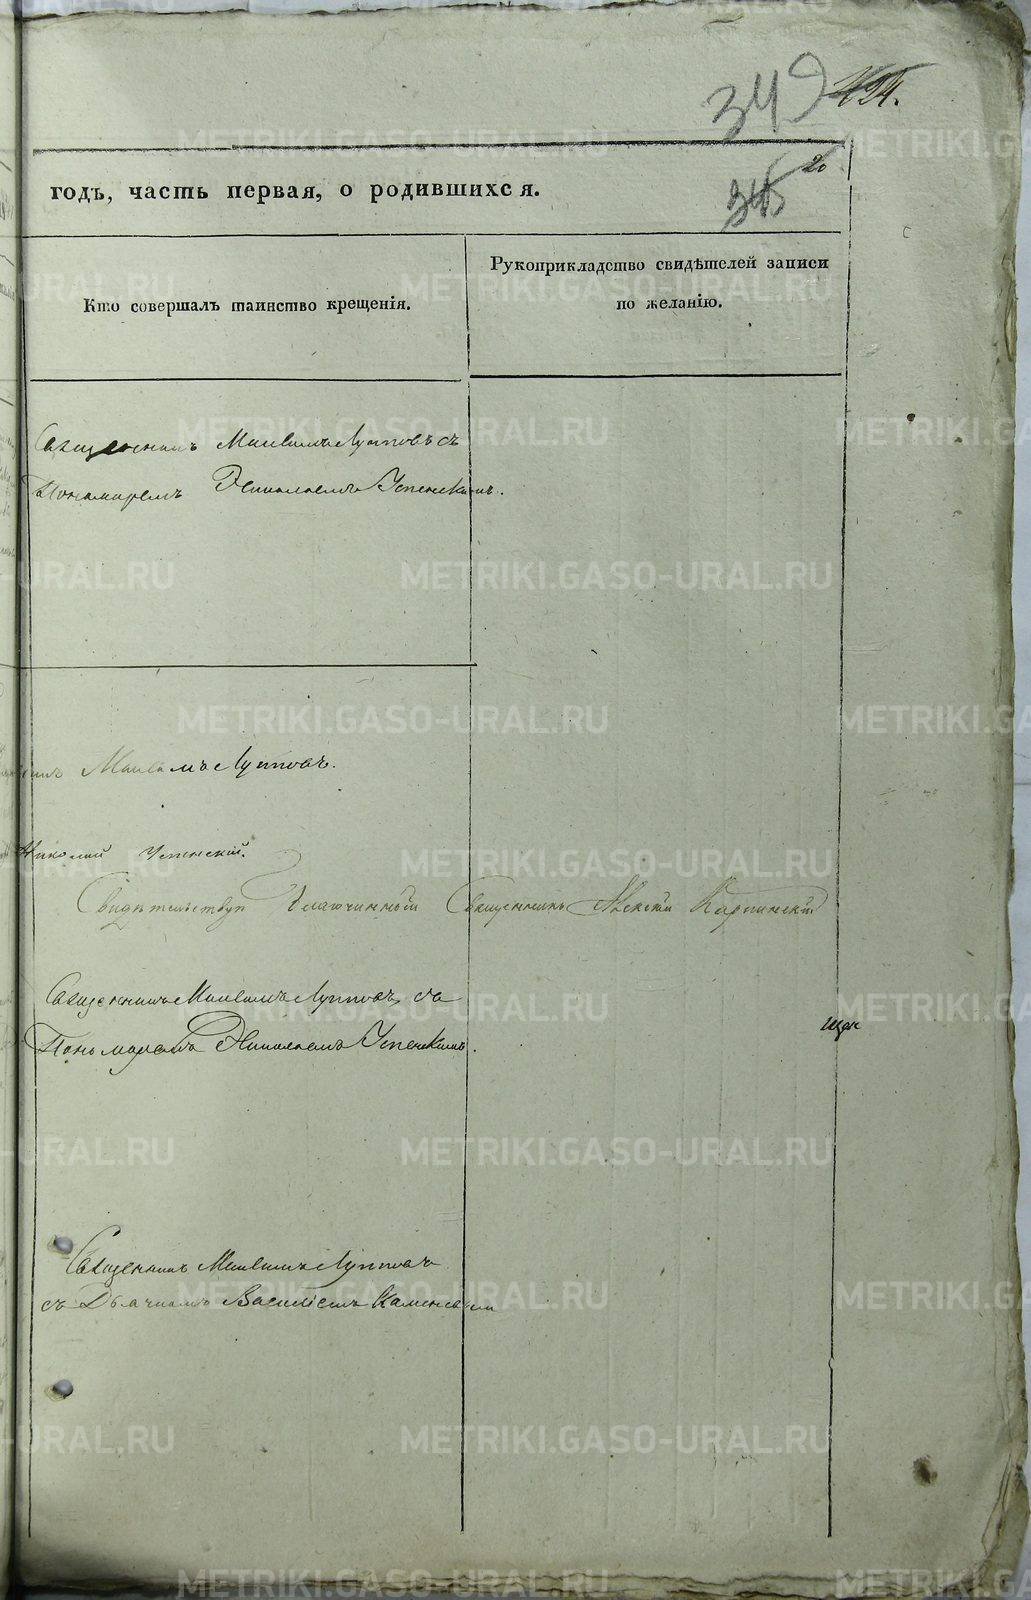 349
424.
20
345
годъ, часть первая, о родившихся.
Кто совершалъ таинство крещенія.
Рукоприкладство свидѣтелей записи
по желанію.
Священникъ Максимъ Луппов съ
Пономаремъ Николаемъ Успенскимъ.
Максимъ Луппов.
Николай Успенскій.
Свидѣтельствую Благочинный Священникъ Алексій Карпинскій
Священникъ Максимъ Луппов съ
Пономаремъ Николаемъ Успенскимъ.
Священникъ Максимъ Луппов
съ Дьячкомъ Василіемъ Каменскимъ
METRIKI.GASO-URAL.RU